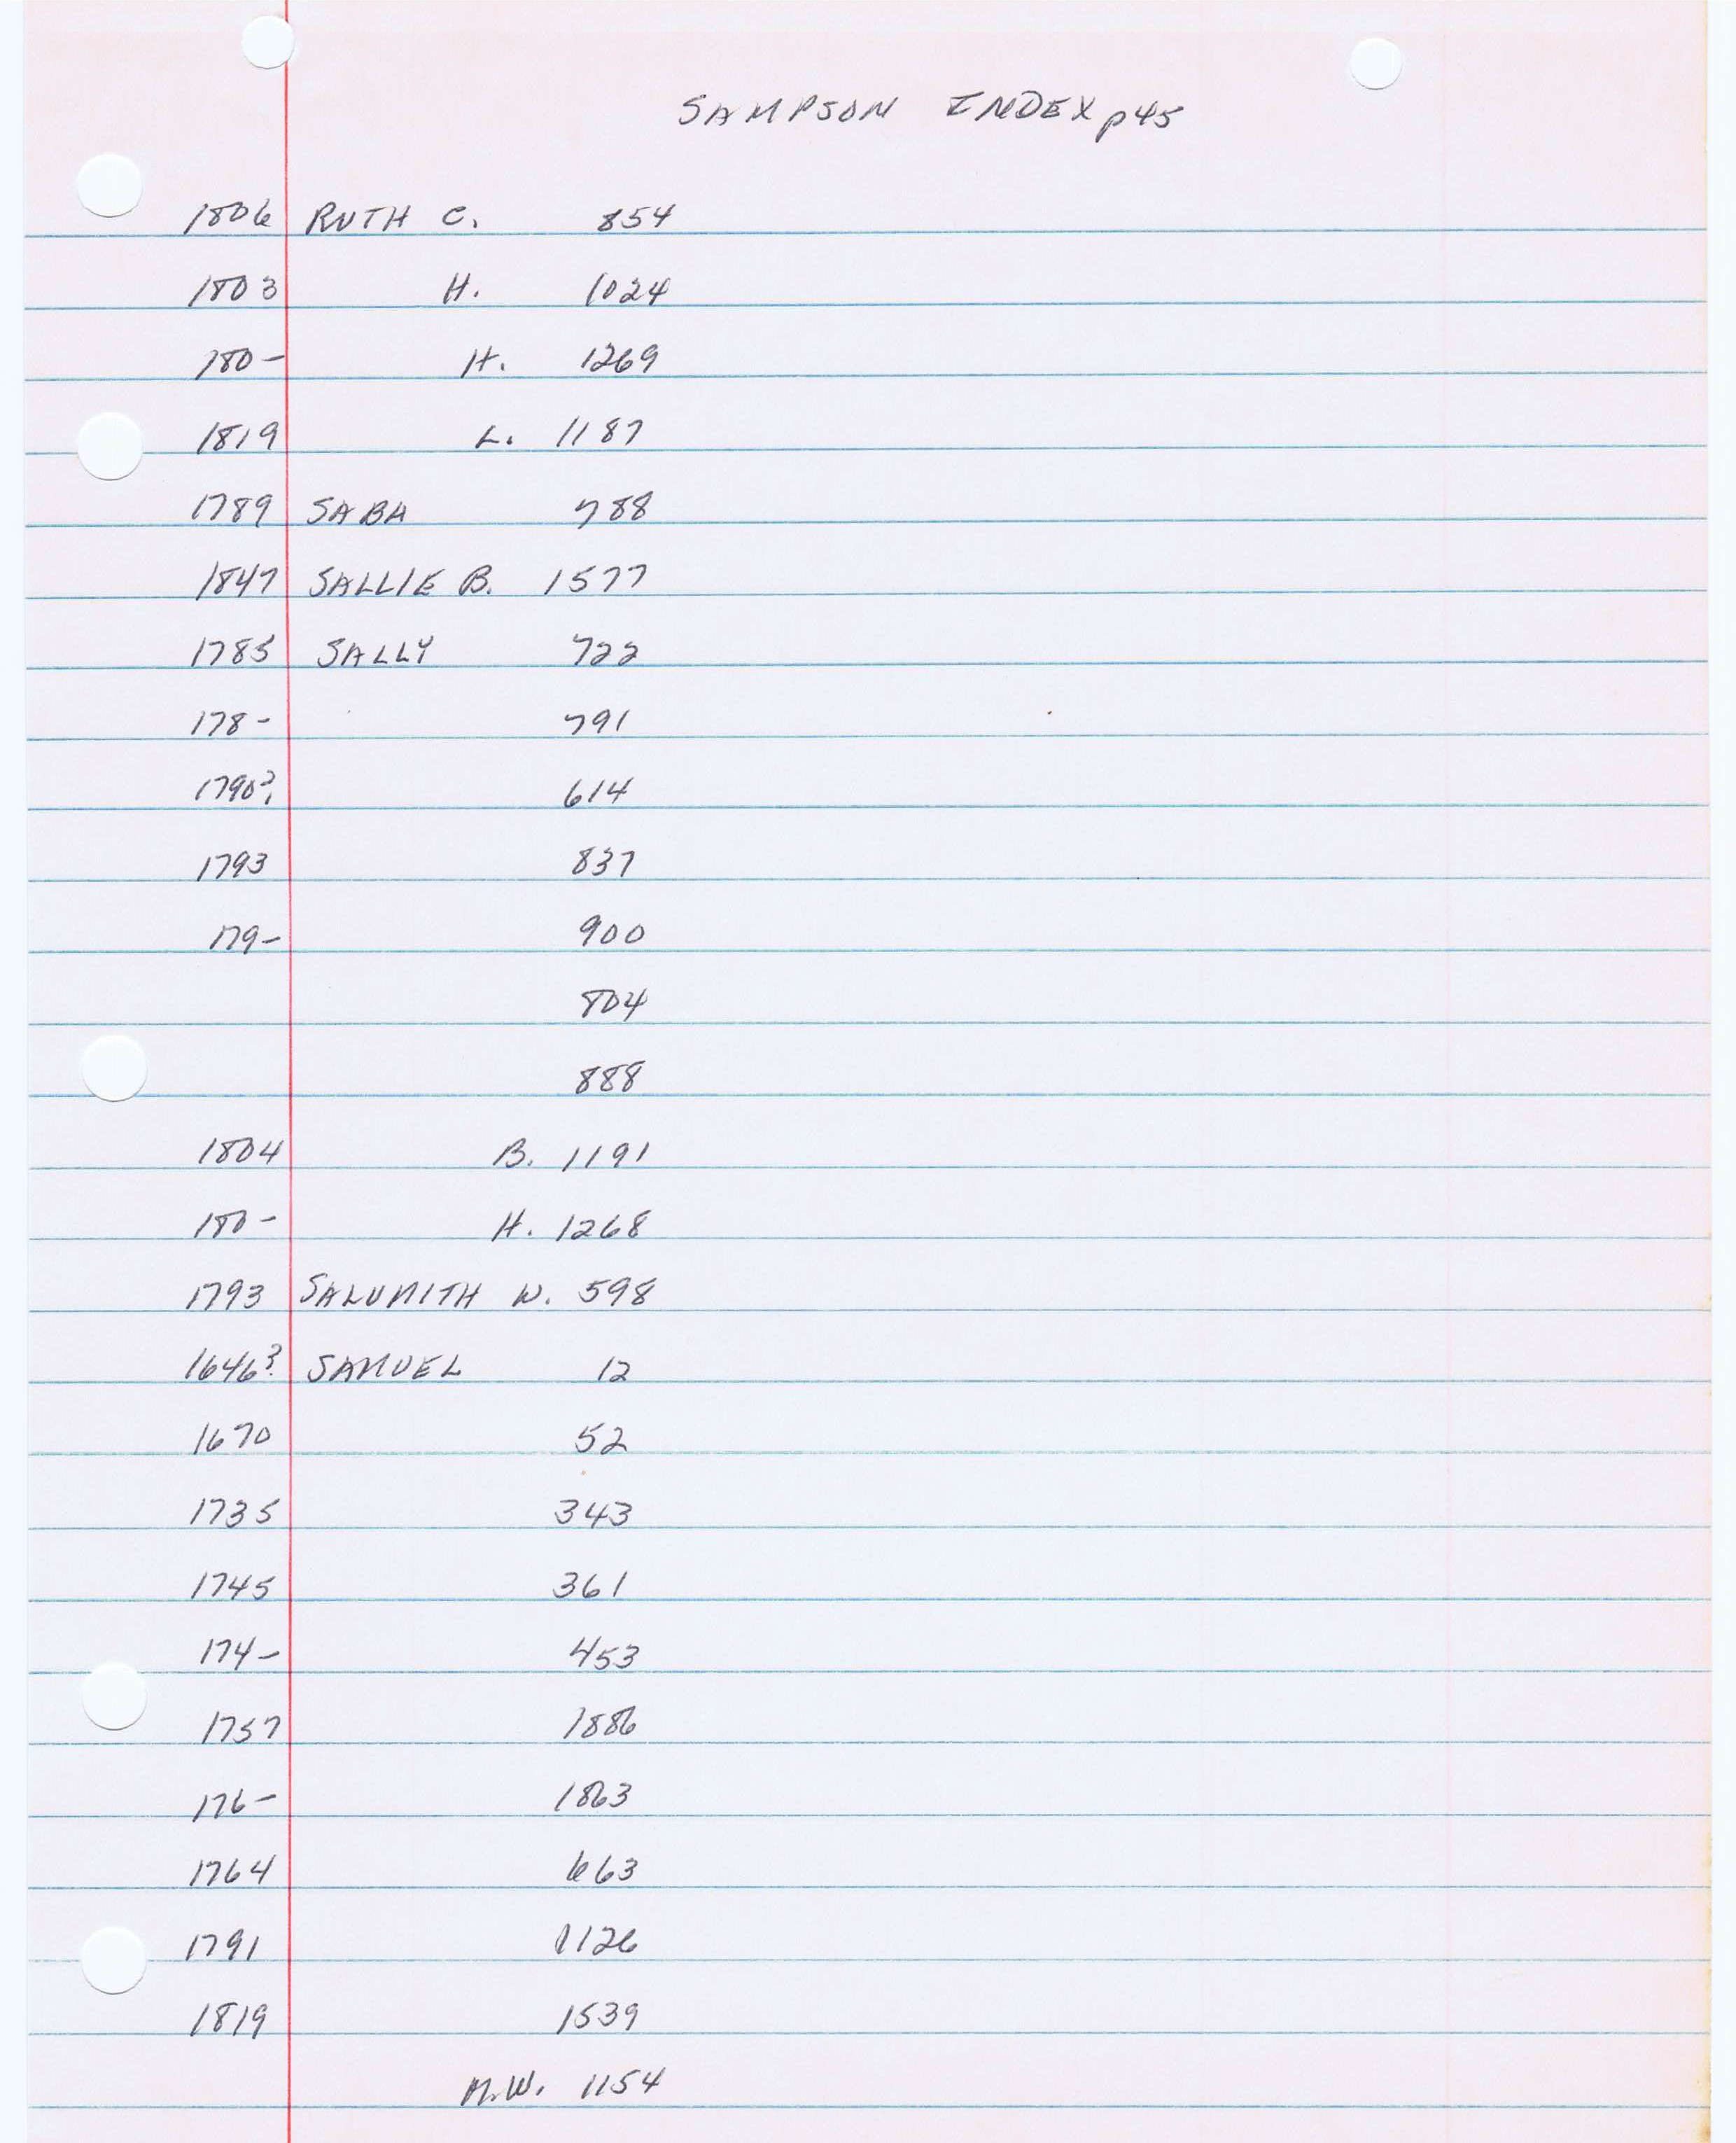 SAMPSON INDEX p45
1806 RUTH C. 854
1803 H. 1024
180- H. 1269
1819 L. 1187
1789 SABA 788
1847 SALLIE B. 1577
1785 SALLY 722
178- 791
1790? 614
1793 837
179- 900
804
888
1804 B. 1191
180- H. 1268
1793 SALUMITH W. 598
1646? SAMUEL 12
1670 52
1735 343
1745 361
174- 453
1757 1886
176- 1863
1764 663
1791 1126
1819 1539
M.W. 1154